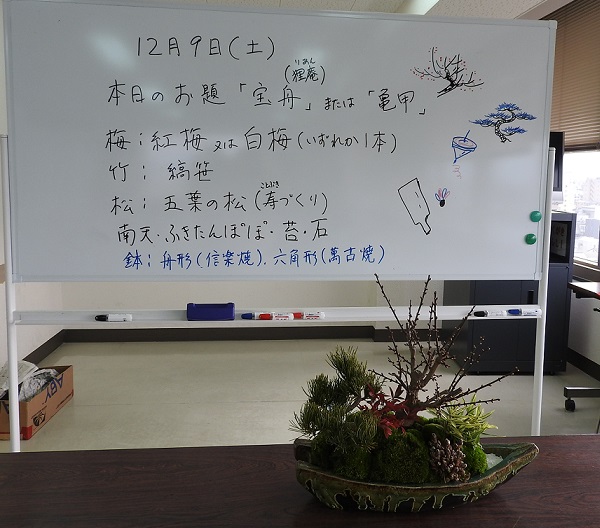 12月9日(土)
りあん
(狸庵)
本日のお題「宝舟」または「亀甲」
梅:紅梅又は白梅(いずれか1本)
竹: 縞笹
ことぶき
松:五葉の松(寿づくり)
南天・ふきたんぽぽ・苔・石
鉢:舟形(信楽焼)、六角形(萬古焼)